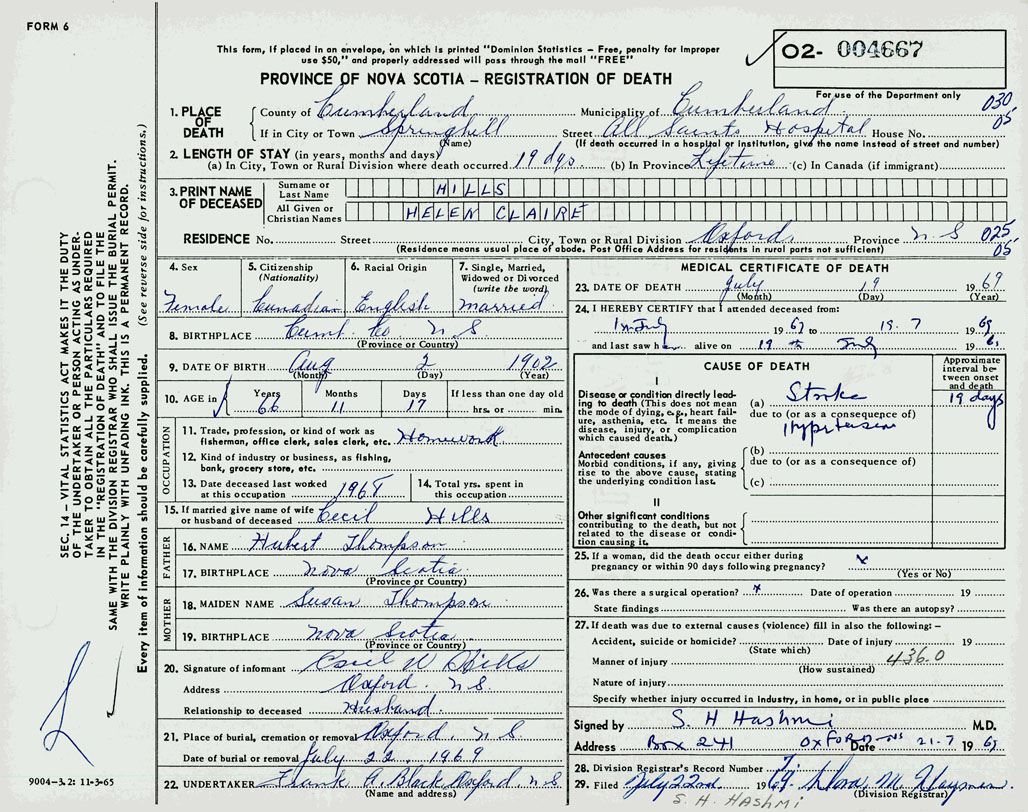 FORM 6
This form, if placed in an envelope, on which is printed "Dominion Statistics – Free, penalty for improper
use $50," and properly addressed will pass through the mail "FREE"
02- 004667
PROVINCE OF NOVA SCOTIA – REGISTRATION OF DEATH
For use of the Department only
1. PLACE OF DEATH
County of Cumberland Municipality of Cumberland 030
If in City or Town Springhill Street All Saints Hospital House No. 05
(Name) (If death occurred in a hospital or institution, give the name instead of street and number)
2. LENGTH OF STAY (in years, months and days)
(a) In City, Town or Rural Division where death occurred 19 dys. (b) In Province Lifetime (c) In Canada (if immigrant)
3. PRINT NAME OF DECEASED
Surname or Last Name HILLS
All Given or Christian Names HELEN CLAIRE
RESIDENCE No. Street City, Town or Rural Division Oxford Province N.S 025
(Residence means usual place of abode. Post Office Address for residents in rural parts not sufficient) 05
4. Sex Female
5. Citizenship (Nationality) Canadian
6. Racial Origin English
7. Single, Married, Widowed or Divorced (write the word) Married
8. BIRTHPLACE Cumb. Co N.S
(Province or Country)
9. DATE OF BIRTH Aug 2 1902
(Month) (Day) (Year)
10. AGE in Years 66 Months 11 Days 17 If less than one day old hrs. or min.
OCCUPATION
11. Trade, profession, or kind of work as
fisherman, office clerk, sales clerk, etc. Homework
12. Kind of industry or business, as fishing,
bank, grocery store, etc.
13. Date deceased last worked
at this occupation
14. Total yrs. spent in
this occupation
15. If married give name of wife
or husband of deceased Cecil Hills
FATHER
16. NAME Hubert Thompson
17. BIRTHPLACE Nova Scotia
(Province or Country)
MOTHER
18. MAIDEN NAME Susan Thompson
19. BIRTHPLACE Nova Scotia
(Province or Country)
20. Signature of informant Cecil W Hills
Address Oxford N.S.
Relationship to deceased Husband
21. Place of burial, cremation or removal Oxford, N.S
Date of burial or removal July 22 1969
22. UNDERTAKER Frank A. Black Oxford N.S
(Name and address)
MEDICAL CERTIFICATE OF DEATH
23. DATE OF DEATH July 19 1969
(Month) (Day) (Year)
24. I HEREBY CERTIFY that I attended deceased from:
1st July 1969 to 19.7 1969
and last saw h alive on 19th July 196
CAUSE OF DEATH
Approximate interval between onset and death
I
Disease or condition directly leading to death (This does not mean
the mode of dying, e.g., heart failure, asthenia, etc. It means the
disease, injury, or complication
which caused death.)
(a) Stroke 19 days
due to (or as a consequence of)
Hypertension
Antecedent causes
Morbid conditions, if any, giving
rise to the above cause, stating
the underlying condition last.
(b)
due to (or as a consequence of)
(c)
II
Other significant conditions
contributing to the death, but not
related to the disease or condition causing it
25. If a woman, did the death occur either during
pregnancy or within 90 days following pregnancy? x
(Yes or No)
26. Was there a surgical operation? x Date of operation 19
State findings Was there an autopsy?
27. If death was due to external causes (violence) fill in also the following: –
Accident, suicide or homicide? Date of injury 19
(State which)
Manner of injury 436.0
(How sustained)
Nature of injury
Specify whether injury occurred in industry, in home, or in public place
Signed by S. H Hashmi M.D.
Address Box 241 OXFORD NS Date 21-7 1969
28. Division Registrar's Record Number 7
29. Filed July 22nd 1969
(Division Registrar)
S. H. HASHMI
SEC. 14 – VITAL STATISTICS ACT MAKES IT THE DUTY
OF THE UNDERTAKER OR PERSON ACTING AS UNDER-
TAKER TO OBTAIN ALL THE PARTICULARS REQUIRED
IN THE "REGISTRATION OF DEATH" AND TO FILE THE
SAME WITH THE DIVISION REGISTRAR WHO SHALL ISSUE THE BURIAL PERMIT.
WRITE PLAINLY WITH UNFADING INK. THIS IS A PERMANENT RECORD.
Every item of information should be carefully supplied. (See reverse side for instructions.)
9004-3.2: 11-3-65